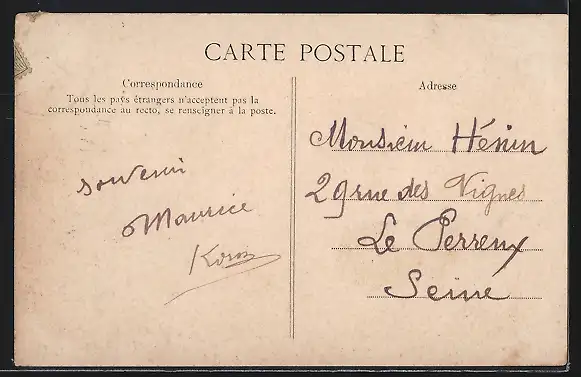 CARTE POSTALE
Correspondance
Tous les pays étrangers n'acceptent pas la
correspondance au recto, se renseigner à la poste.
souvenir
Maurice
Adresse
Monsieur Hénin
29 rue des Vignes
Le Perreux
Seine